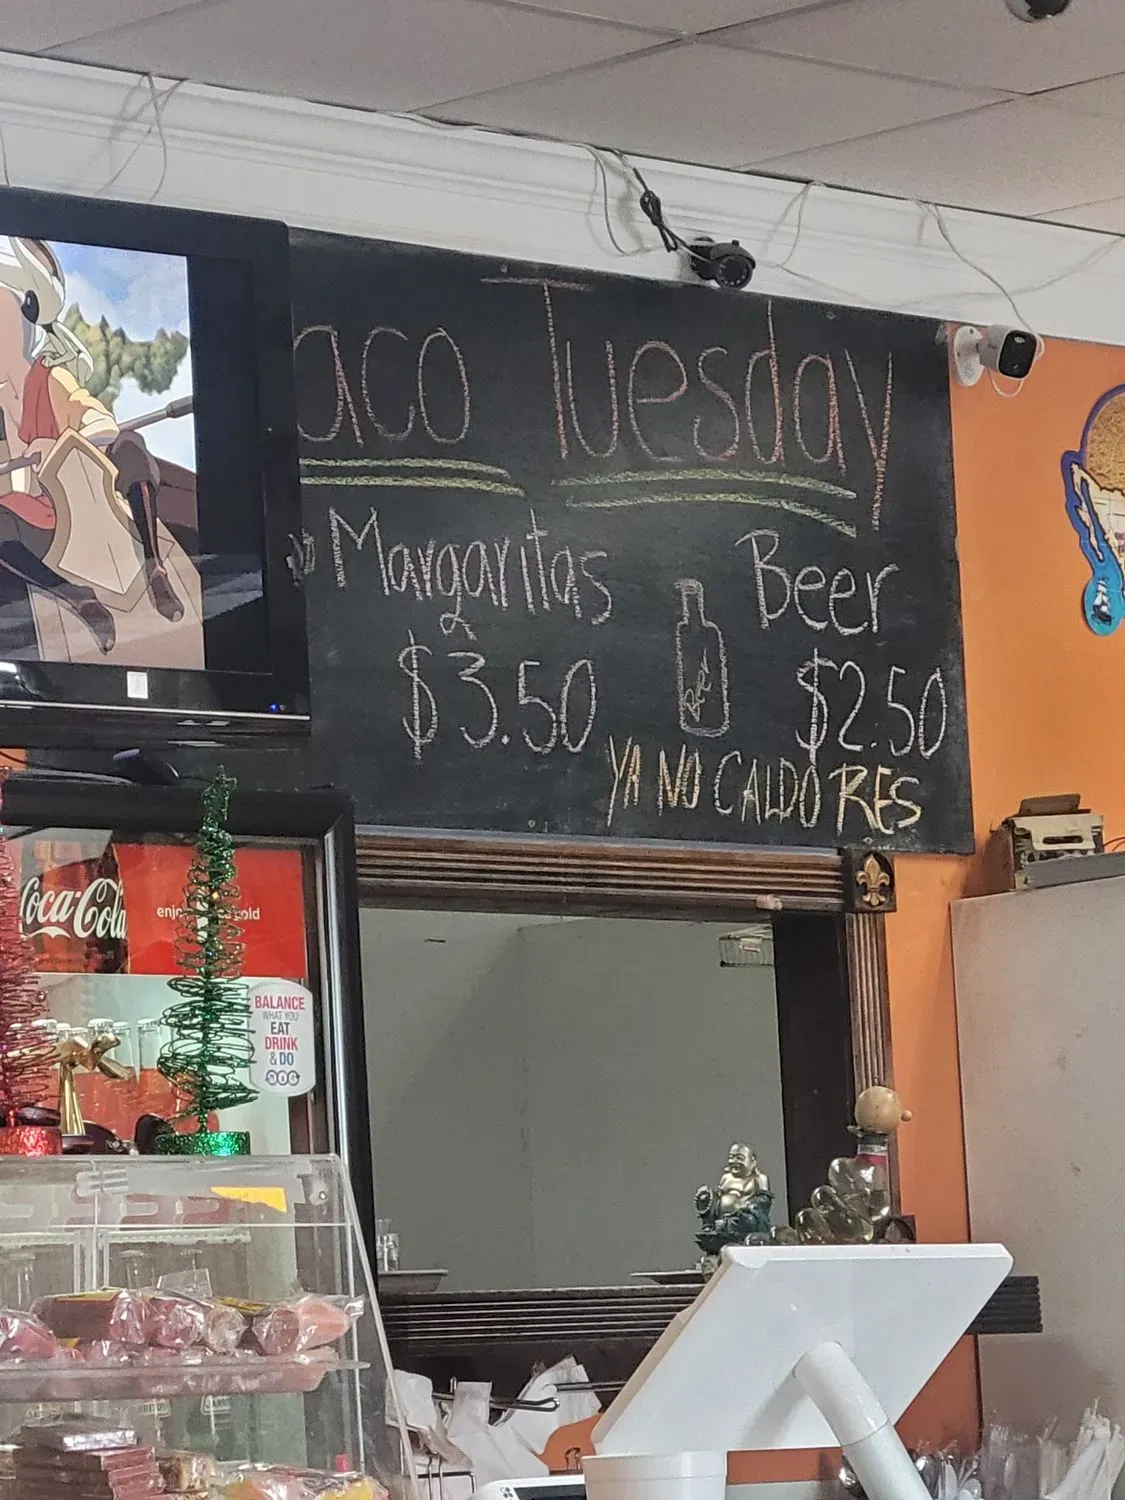 aco Tuesday
Margaritas
$3.50
Beer
$2.50
YA NO CALDO RES
Coca-Cola
BALANCE
WHAT YOU
EAT
DRINK
& DO